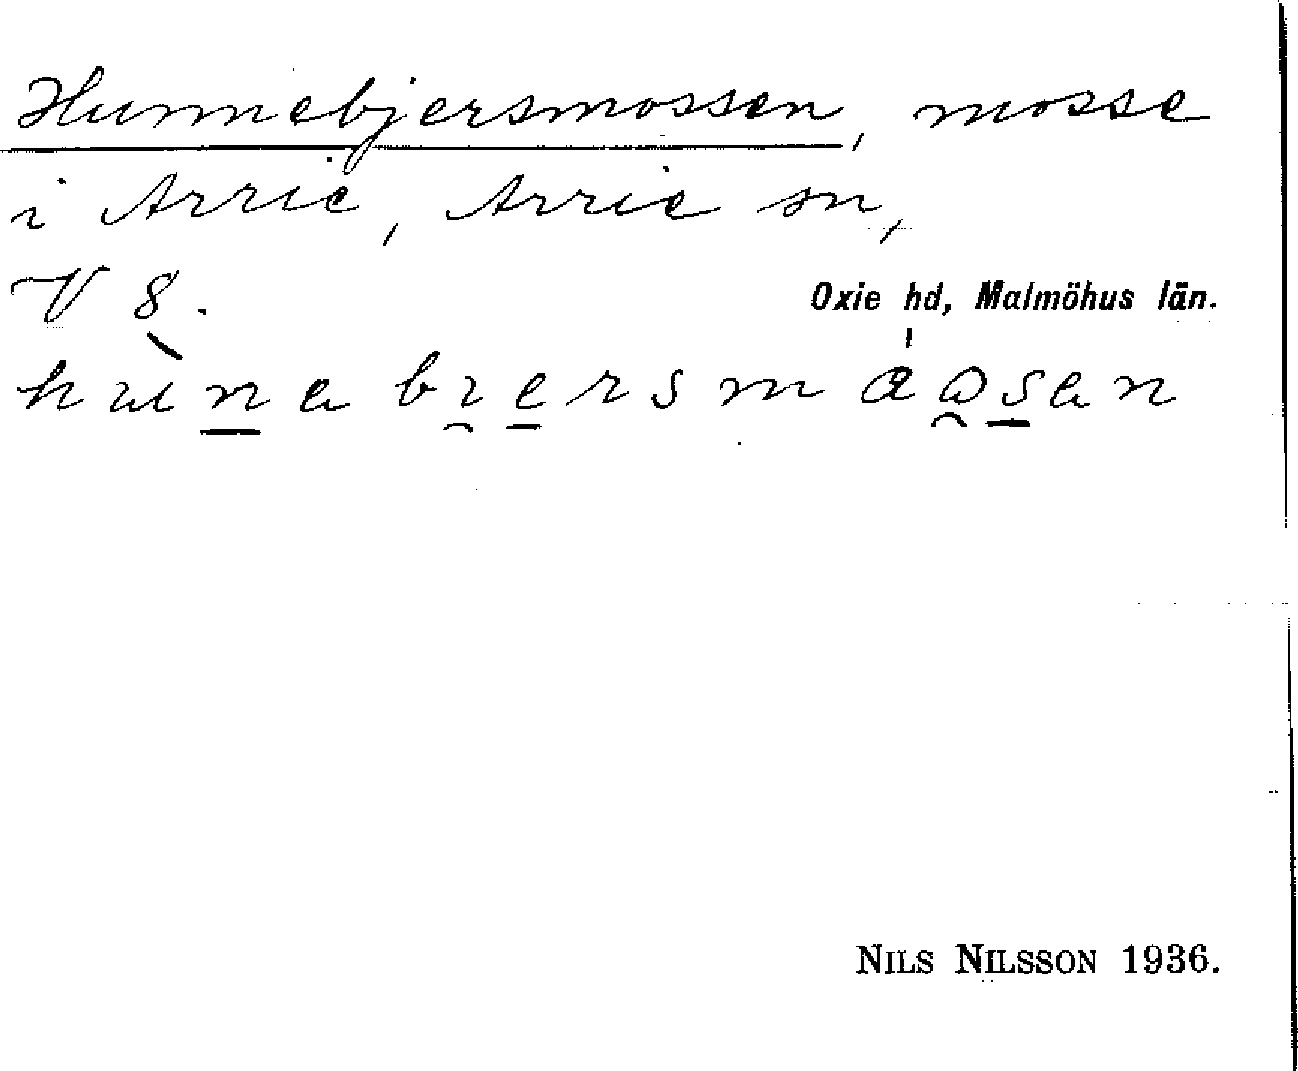 Hunnebjersmossen, mosse
i Arrie, Arrie sn,
V 8.
Oxie hd, Malmöhus län.
NILS NILSSON 1936.